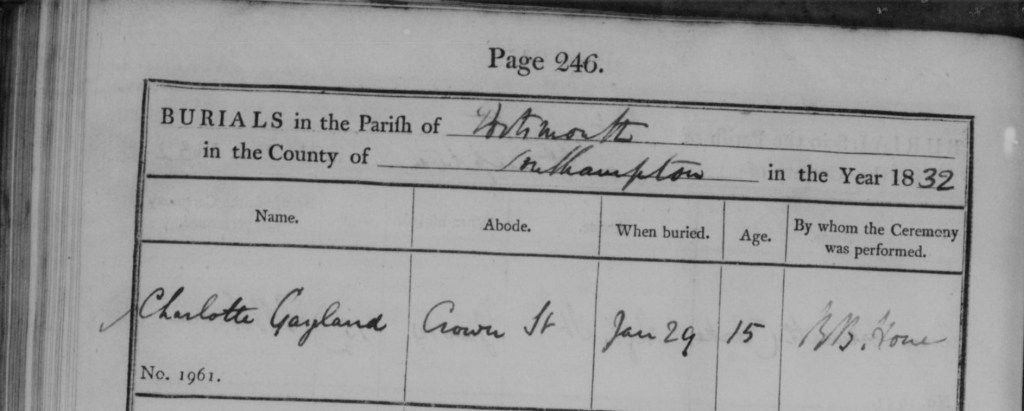 Page 246.
BURIALS in the Parish of Portsmouth
in the County of Southampton in the Year 1832
Name. Abode. When buried. Age. By whom the Ceremony was performed.
Charlotte Gayland Crown St Jan 29 15
No. 1961.